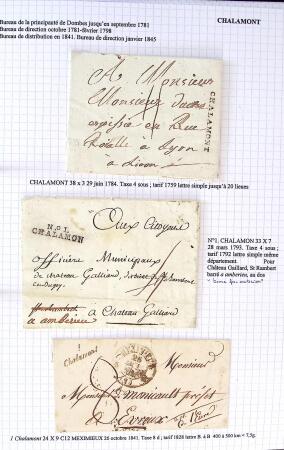 Bureau de la principauté de Dombes jusqu'en septembre 1781
CHALAMONT
Bureau de direction octobre 1781-février 1798
Bureau de distribution en 1841. Bureau de direction janvier 1845
A Monsieur
Monsieur
CHALAMONT
en Rue
à Lyon
à Lyon
CHALAMONT 38 x 3 29 juin 1784. Taxe 4 sous ; tarif 1759 lettre simple jusqu'à 20 lieues
N°1
CHALAMON
Aux Citoyens
Officiers Municipaux
de chateau Galliand
à Chateau Galliand
a amberieu
N°1, CHALAMON 33 X 7
28 mars 1793. Taxe 4 sous ;
tarif 1792 lettre simple même
département. Pour
Château Gaillard, St Rambert
barré a amberieu, au dos
1 Chalamont
Monsieur
Monsieur préfet
à Evreux
1 Chalamont 24 X 9 C12 MEXIMIEUX 26 octobre 1841. Taxe 8 d ; tarif 1828 lettre B. à B 400 à 500 km < 7,5g.